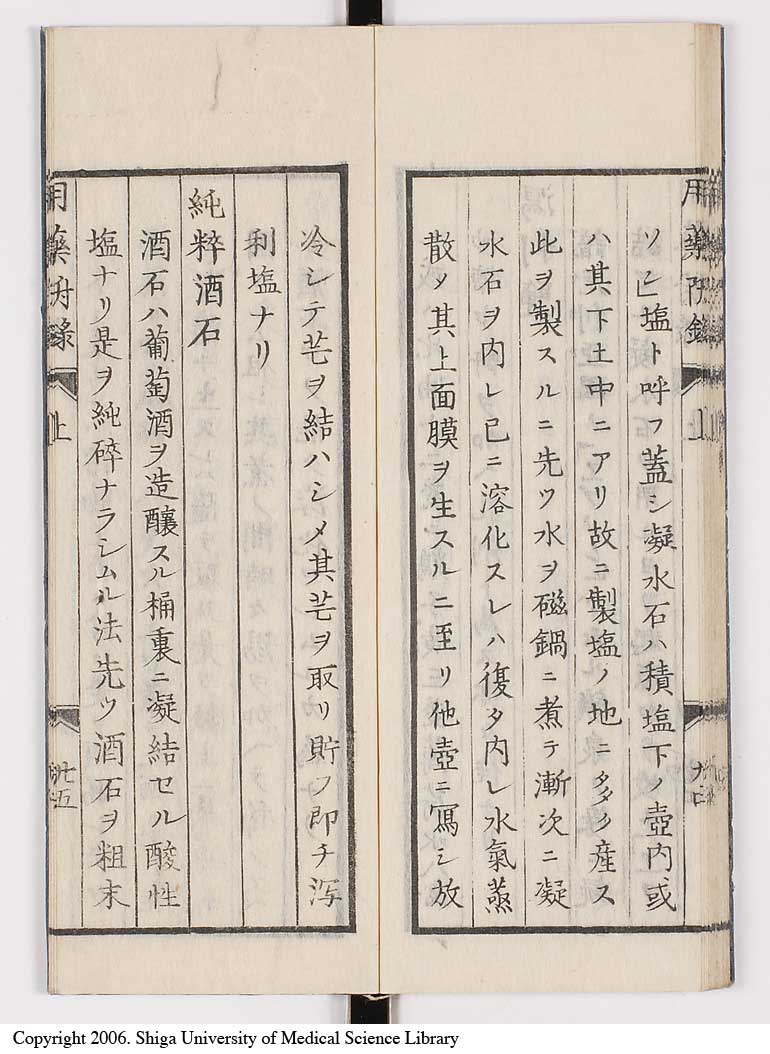 ソン」塩ト呼フ蓋シ凝水石ハ積塩下ノ壺内或
ハ其下土中ニアリ故ニ製塩ノ地ニ多ク産ス
此ヲ製スルニ先ツ水ヲ磁鍋ニ煮テ漸次ニ凝
水石ヲ内レ已ニ溶化スレハ復タ内レ水氣蒸
散メ其上面膜ヲ生スルニ至リ他壺ニ寫シ放
冷シテ芒ヲ結ハシメ其芒ヲ取リ貯フ即チ瀉
利塩ナリ
純粹酒石
酒石ハ葡萄酒ヲ造釀スル桶裏ニ凝結セル酸性
塩ナリ是ヲ純碎ナラシムル法先ツ酒石ヲ粗末
上
廿五
Copyright 2006. Shiga University of Medical Science Library